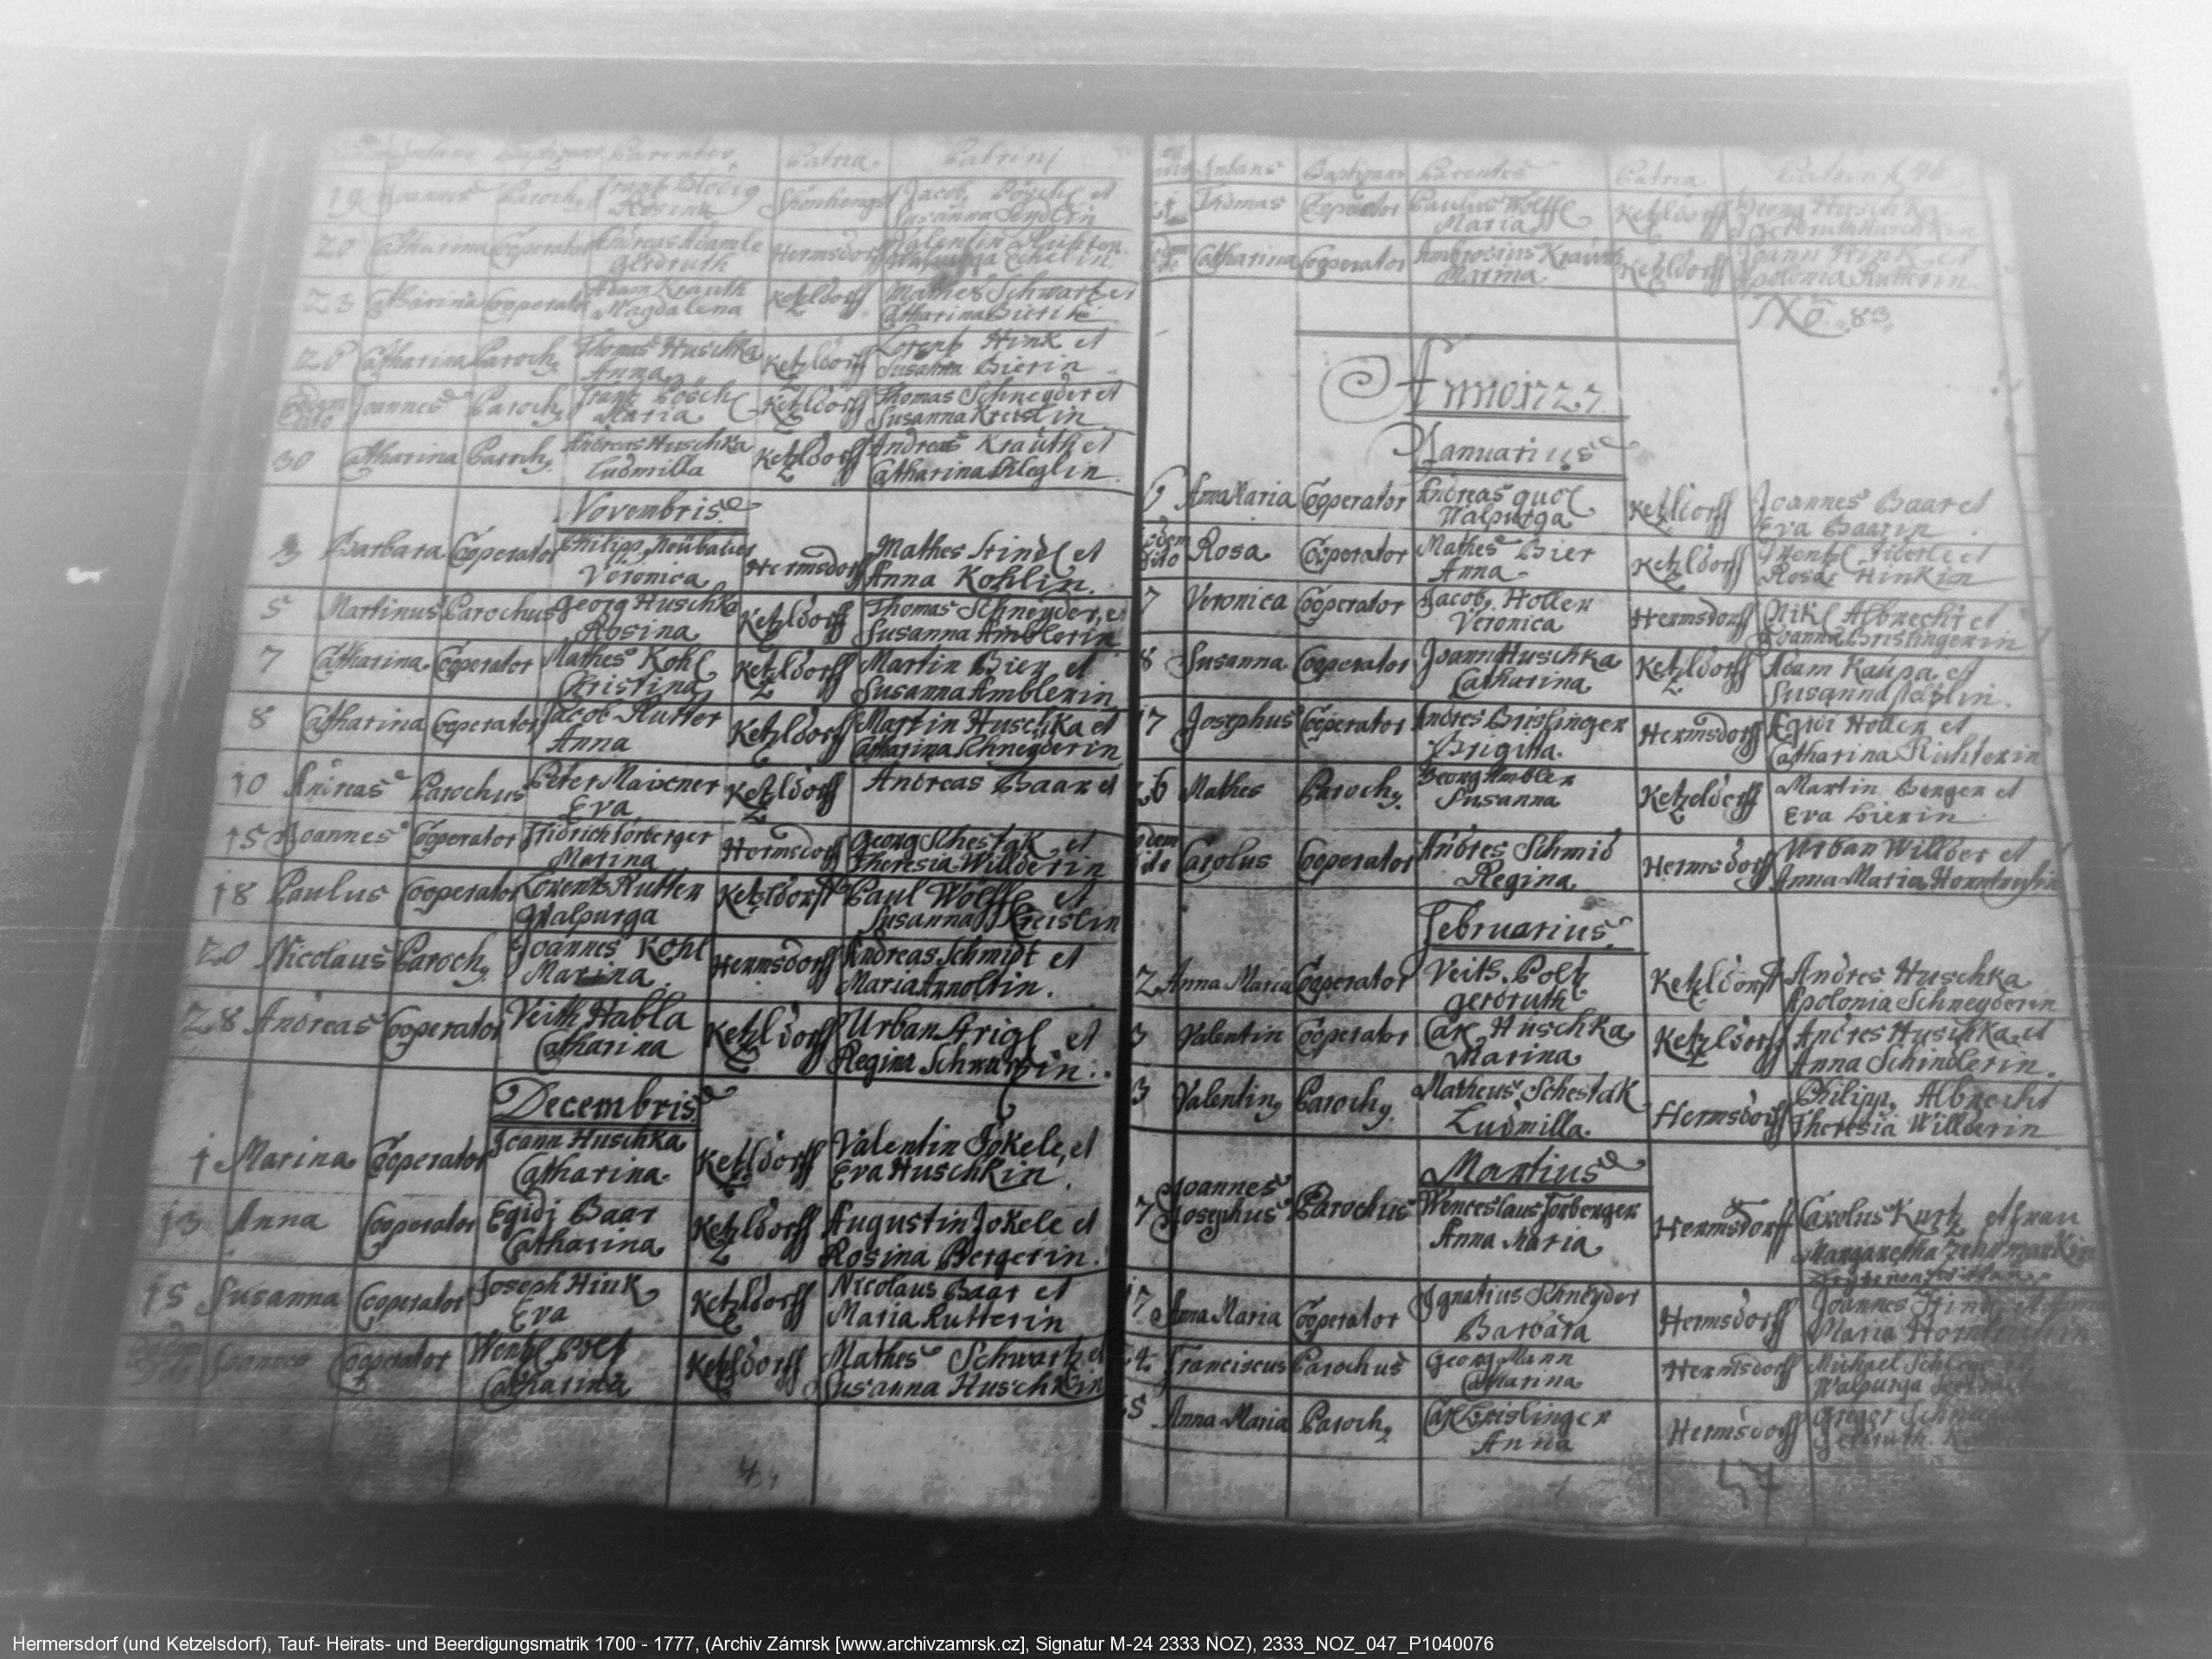 Infans Baptizans Parentes Patria Patrini
19 Joannes Paroch9 Frantz Blodig Shönhengst Jacob Pöschl et
Rosina Susanna Seydlin
20 Catharina Cooperator Andreas Adamle Hermsdorff Valentin Richter
Gerdruth Walpurga
23 Catharina Cooperator Adam Krauth Ketzldorff Mathes Schwartz et
Magdalena Catharina Bierin
28 Catharina Paroch9 Thomas Huschka Ketzldorff Lorentz Hink et
Anna Susanna Bierin
Eodem dito Joannes Paroch9 Frantz Pöschl Ketzldorff Thomas Schneyder et
Maria Susanna Kreislin
30 Catharina Paroch9 Andreas Huschka Ketzldorff Andreas Krauth et
Ludmilla Catharina Kleglin
Novembris
3 Barbara Cooperator Philipp Neübauer Hermsdorff Mathes Stindl et
Veronica Anna Kohlin.
5 Martinus Parochus Georg Huschka Ketzldorff Thomas Schneyder, et
Rosina Susanna Amblerin
7 Catharina Cooperator Mathes Kohl Ketzldorff Martin Bier et
Christina Susanna Amblerin
8 Catharina Cooperator Jacob Rutter Ketzldorff Martin Huschka et
Anna Catharina Schneyderin
10 Andreas Parochus Peter Maixner Ketzldorff Andreas Baar et
Eva
15 Joannes Cooperator Fridrich Forberger Hermsdorff Georg Schestak et
Marina Theresia Willderin
18 Paulus Cooperator Lorentz Rutter Ketzldorff Paul Wolffl et
Walpurga Susanna Kreislin
20 Nicolaus Paroch9 Joannes Kohl Hermsdorff Andreas Schmidt et
Marina Maria Arnoltin.
28 Andreas Cooperator Veith Habla Ketzldorff Urban Strigl et
Catharina Regina Schwartzin.
Decembris
1 Marina Cooperator Joann Huschka Ketzldorff Valentin Jokele, et
Catharina Eva Huschkin.
13 Anna Cooperator Egidi Baar Ketzldorff Augustin Jokele et
Catharina Rosina Bergerin.
15 Susanna Cooperator Joseph Hink Ketzldorff Nicolaus Baar et
Eva Maria Rutterin
Eodem dito Joannes Cooperator Wentzl Poltz Ketzldorff Mathes Schwartz et
Catharina Susanna Huschkin
Infans Baptizans Parentes Patria Patrini 46
Thomas Cooperator Paulus Wolffl Ketzldorff Georg Huschka
Maria Gerdruth Huschkin
Catharina Cooperator Ambrosius Krauth Ketzldorff Joann Hink et
Marina Apolonia Rutterin
No. 83
Anno 1727
Januarius
6 Anna Maria Cooperator Andreas quol Ketzldorff Joannes Baar et
Walpurga Eva Baarin
Eodem dito Rosa Cooperator Mathes Bier Ketzldorff Wentzl Fiderle et
Anna Rosa Hinkin
7 Veronica Cooperator Jacob Holler Hermsdorff Nikl Albrecht et
Veronica Joanna Brislingerin
8 Susanna Cooperator Joann Huschka Ketzldorff Adam Kaupa et
Catharina Susanna
17 Josephus Cooperator Andres Brislinger Hermsdorff Egidi Holler et
Brigitta. Catharina Richterin
26 Mathes Paroch9 Georg Ambler Ketzeldorff Martin Berger et
Susanna Eva Bierin
Eodem dito Carolus Cooperator Andres Schmid Hermsdorff Urban Willder et
Regina Anna Maria
Februarius
2 Anna Maria Cooperator Veith Poltz Ketzldorff Andres Huschka
Gerdruth Apolonia Schneyderin
3 Valentin Cooperator Carl Huschka Ketzldorff Andres Huschka et
Marina Anna Schindlerin.
3 Valentin9 Paroch9 Matheus Schestak Hermsdorff Philipp Albrecht
Ludmilla. Theresia Willderin
Martius
7 Joannes Josephus Parochus Wenceslaus Forberger Hermsdorff Carolus Kurtz et frau
Anna Maria Margaretha
17 Anna Maria Cooperator Ignatius Schneyder Hermsdorff Joannes Stindl et Anna
Barbara Maria
24 Franciscus Parochus Georg Mann Hermsdorff Michael
Catharina Walpurga
25 Anna Maria Paroch9 Carl Brislinger Hermsdorff Gregor
Anna Gerdruth
47
Hermersdorf (und Ketzelsdorf), Tauf- Heirats- und Beerdigungsmatrik 1700 - 1777, (Archiv Zámrsk [www.archivzamrsk.cz], Signatur M-24 2333 NOZ), 2333_NOZ_047_P1040076